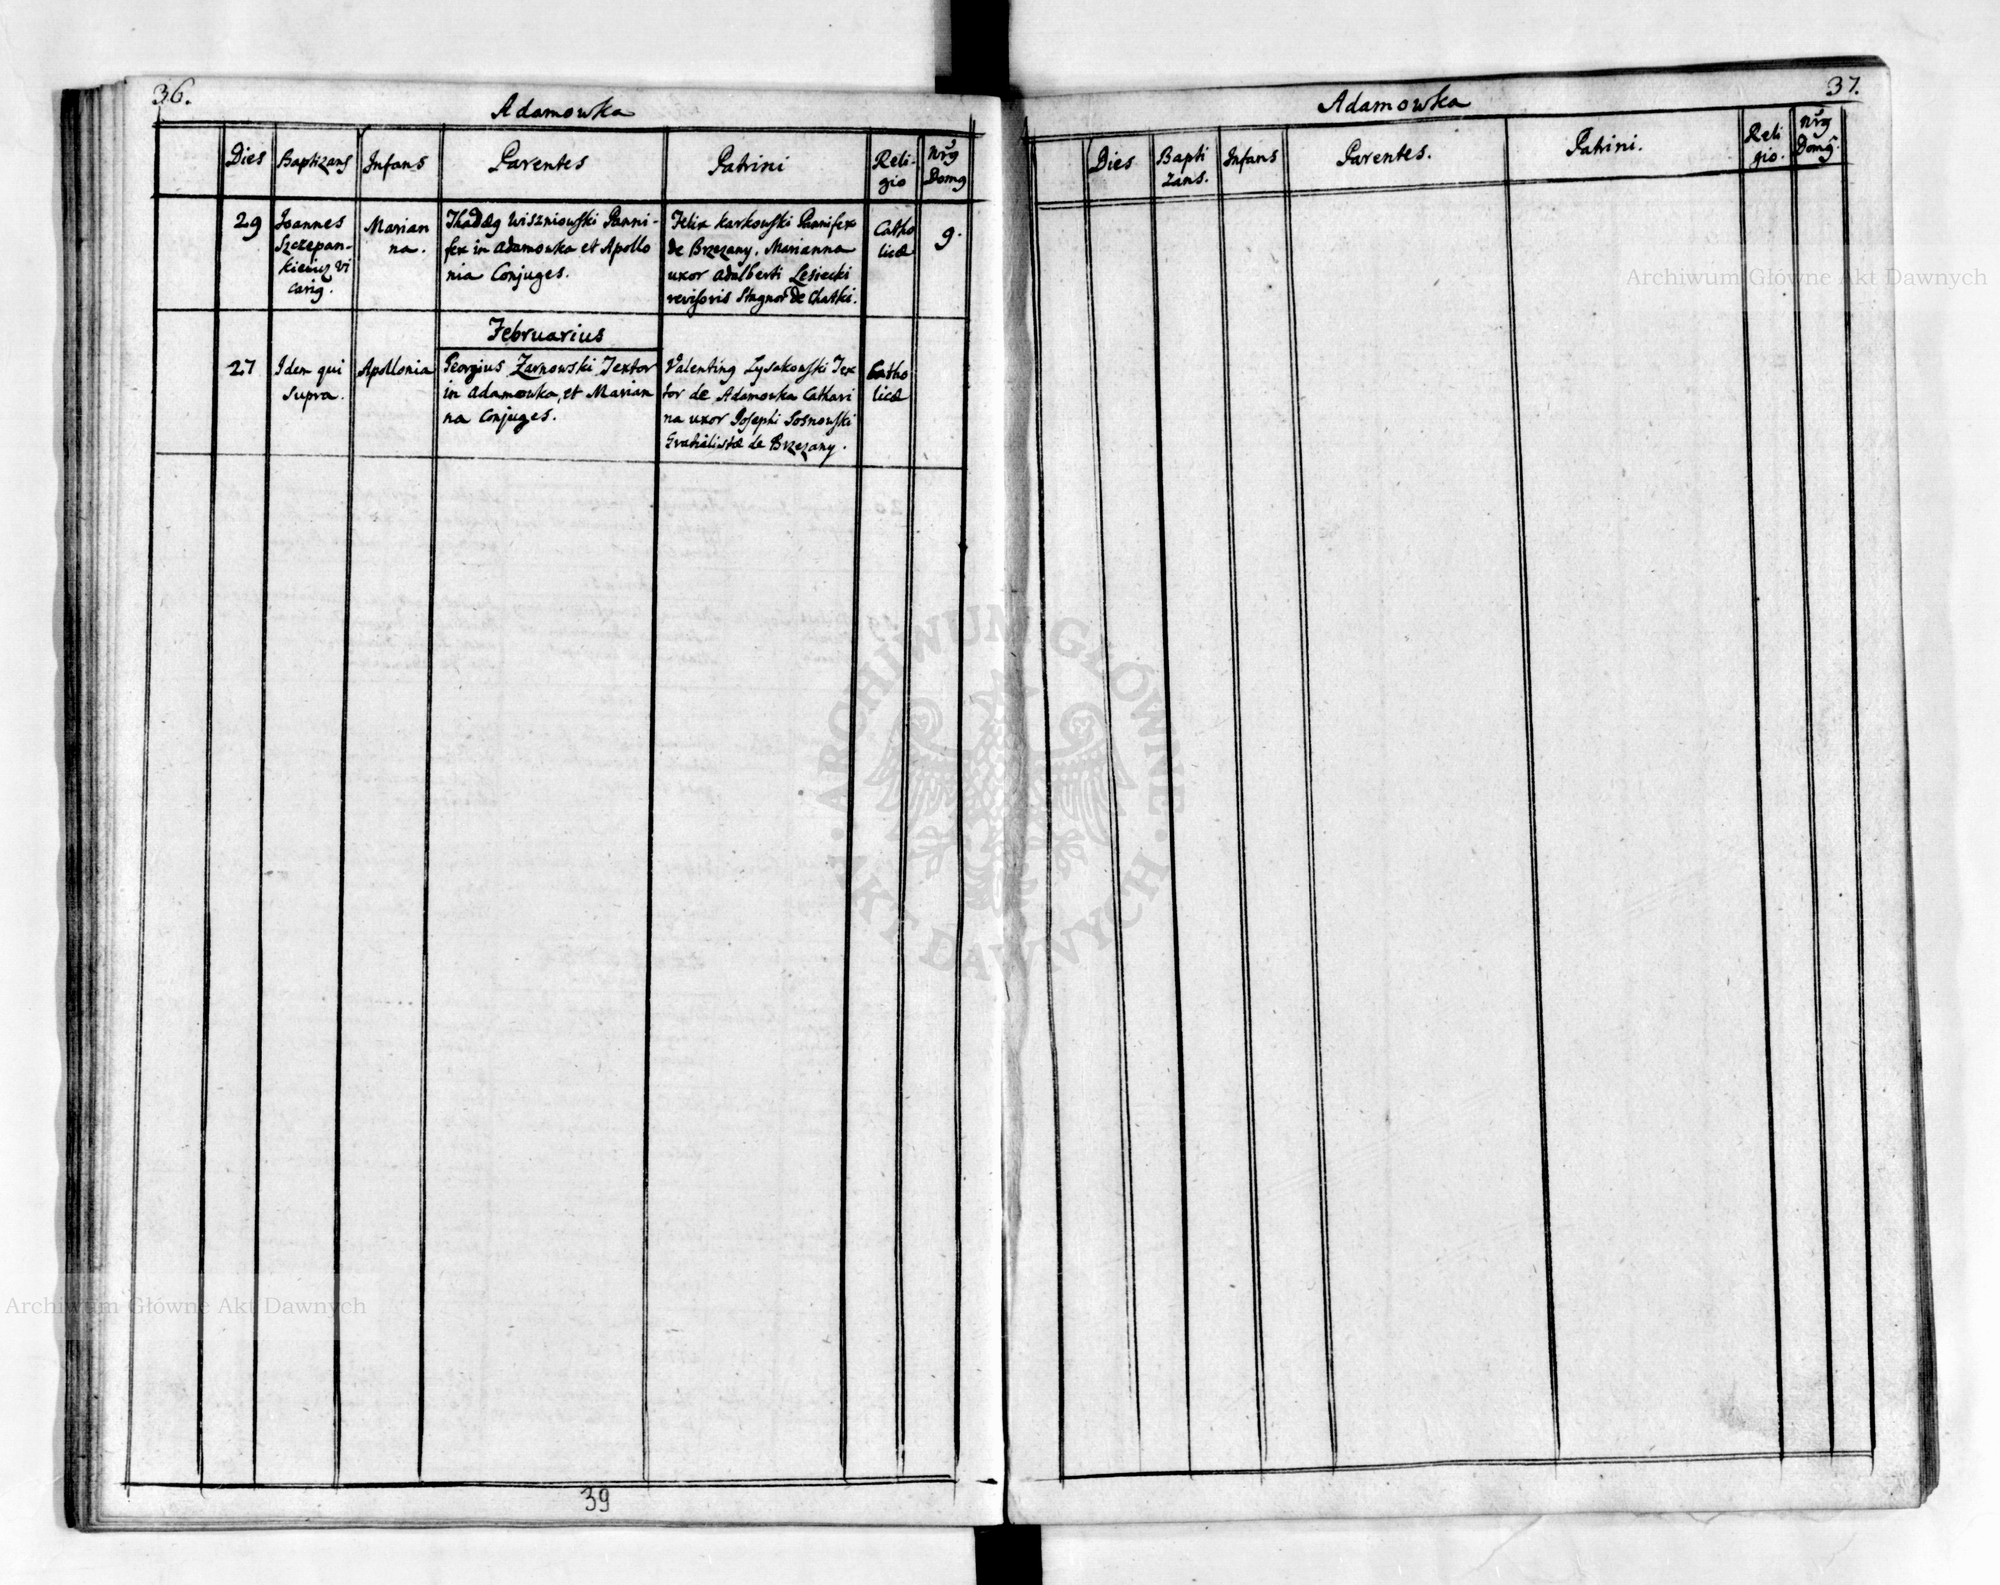 36.
Adamowka
Dies
Baptizans
Infans
Parentes
Patrini
Reli-
gio
Nrg
Domg
29
Joannes
Szczepan-
kiewicz vi
carig.
Marian
na.
Thadæg Wiszniowski Panni-
fex in Adamowka et Apollo
nia Conjuges.
Felix Karkowski Pannifex
de Brzezany. Marianna
uxor Adalberti Lesiecki
revisoris Stagnor de Chatki.
Catho
licæ
9.
Februarius
27
Idem qui
supra.
Apollonia
Georgius Zarnowski Textor
in Adamowka, et Marian
na Conjuges.
Valenting Lysakowski Tex
tor de Adamowka Cathari
na uxor Josephi Sosnowski
Gratialistæ de Brzezany.
Catho
licæ
39
37.
Adamowka
Dies
Bapti
zans.
Infans
Parentes.
Patrini.
Reli
gio.
Nrg
Domg.
Archiwum Główne Akt Dawnych
ARCHIWUM GŁÓWNE
AKT DAWNYCH
Archiwum Główne Akt Dawnych